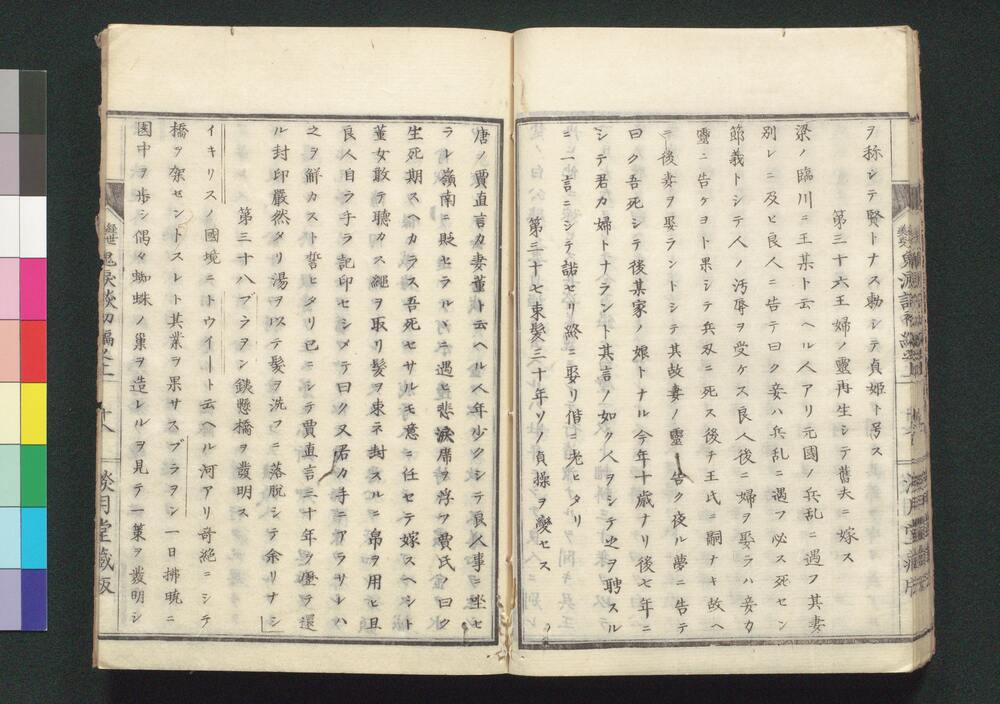 ヲ稱シテ賢トナス勅シテ貞姫ト号ス
第三十六王婦ノ靈再生シテ舊夫ニ嫁ス
梁ノ臨川ニ王某ト云ヘル人アリ元國ノ兵乱ニ遇フ其妻
別レニ及ヒ良人ニ告テ曰ク妾ハ兵乱ニ遇フ必ス死セン
節義トシテ人ノ汚辱ヲ受ケス良人後ニ婦ヲ娶ラハ妾カ
靈ニ告ケヨト果シテ兵刄ニ死ス後チ王氏ニ嗣ナキ故ヘ
ニ後妻ヲ娶ラントシテ其故妻ノ靈ニ告ク夜ル夢ニ告テ
曰ク吾死シテ後某家ノ娘トナル今年十歳ナリ後七年ニ
シテ君カ婦トナラント其言ノ如ク人ヲシテ之ヲ聘スル
ニ一言ニシテ諾セリ終ニ娶リ偕ニ老ヒタリ
第三十七束髪三十年ソノ貞操ヲ變セス
唐ノ賈直言カ妻董ト云ヘル人年少クシテ良人事ニ坐セ
ラレ嶺南ニ貶セラルヽニ遇ヒ悲淚席ヲ浮フ賈氏ノ曰ク
生死期スヘカラス吾死セサルモ意ニ任セテ嫁スヘシト
董女敢テ聽カス繩ヲ取リ髪ヲ束ネ封スルニ帛ヲ用ヒ且
良人自ラ手ラ記印セシメテ曰ク又君カ手ニアラサレハ
之ヲ解カスト誓ヒタリ已ニシテ賈直言二十年ヲ歴テ還
ル封印嚴然タリ湯ヲ以テ髪ヲ洗フニ落脱シテ余リナシ
第三十八ブラヲン鉄懸橋ヲ發明ス
イキリスノ國境ニトウイート云ヘル河アリ奇絶ニシテ
橋ヲ架セントスレト其業ヲ果サスブラヲン一日拂暁ニ
園中ヲ歩シ偶々蜘蛛ノ巣ヲ造レルヲ見テ一業ヲ發明シ
鬼淚談初編之上
十八
談月堂藏版